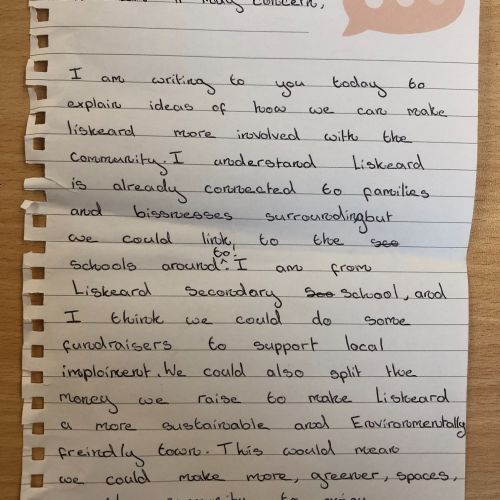 it may concern,
I am writing to you today to
explain ideas of how we can make
liskeard more involved with the
community. I understand Liskeard
is already connected to families
and bissnesses surroundingbut
we could link, to the
schools around to. I am from
Liskeard secondary school, and
I think we could do some
fundraisers to support local
imploiment. We could also split the
money we raise to make Liskeard
a more sustainable and Environmentally
freindly town. This would mean
we could make more, greener, spaces,
community to enjoy